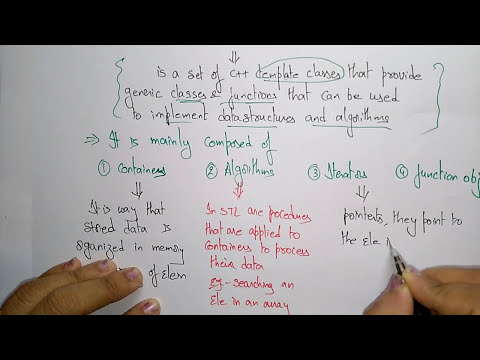 is a set of C++ template classes that provide
generic classes & functions that can be used
to implement datastructures and algorithms
⇒ It is mainly composed of
① Containers
② Algorithms
③ Iterators
④ function obj
It is way that
stored data is
organized in memory
of Elem
In STL are pocedures
that are applied to
Containers to process
their data
Eg - searching an
Ele in an array
pointers, they point to
the ele